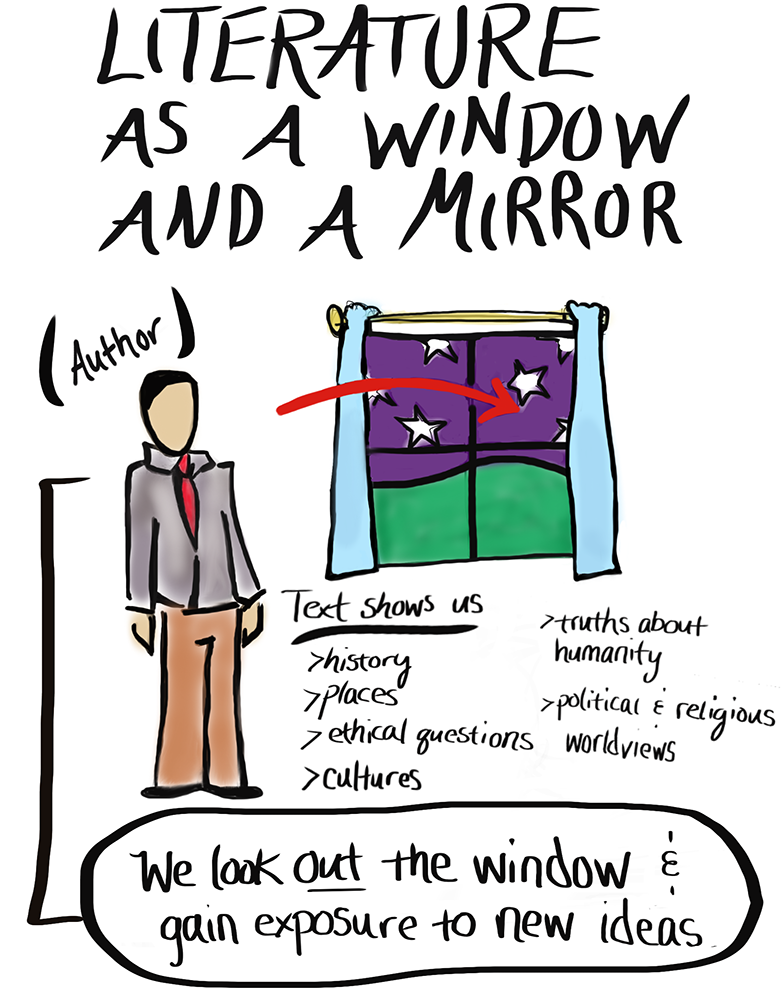 LITERATURE
AS A WINDOW
AND A MIRROR
(Author)
Text shows us
>history
>places
>ethical questions
>cultures
>truths about
humanity
>political & religious
worldviews
We look out the window &
gain exposure to new ideas